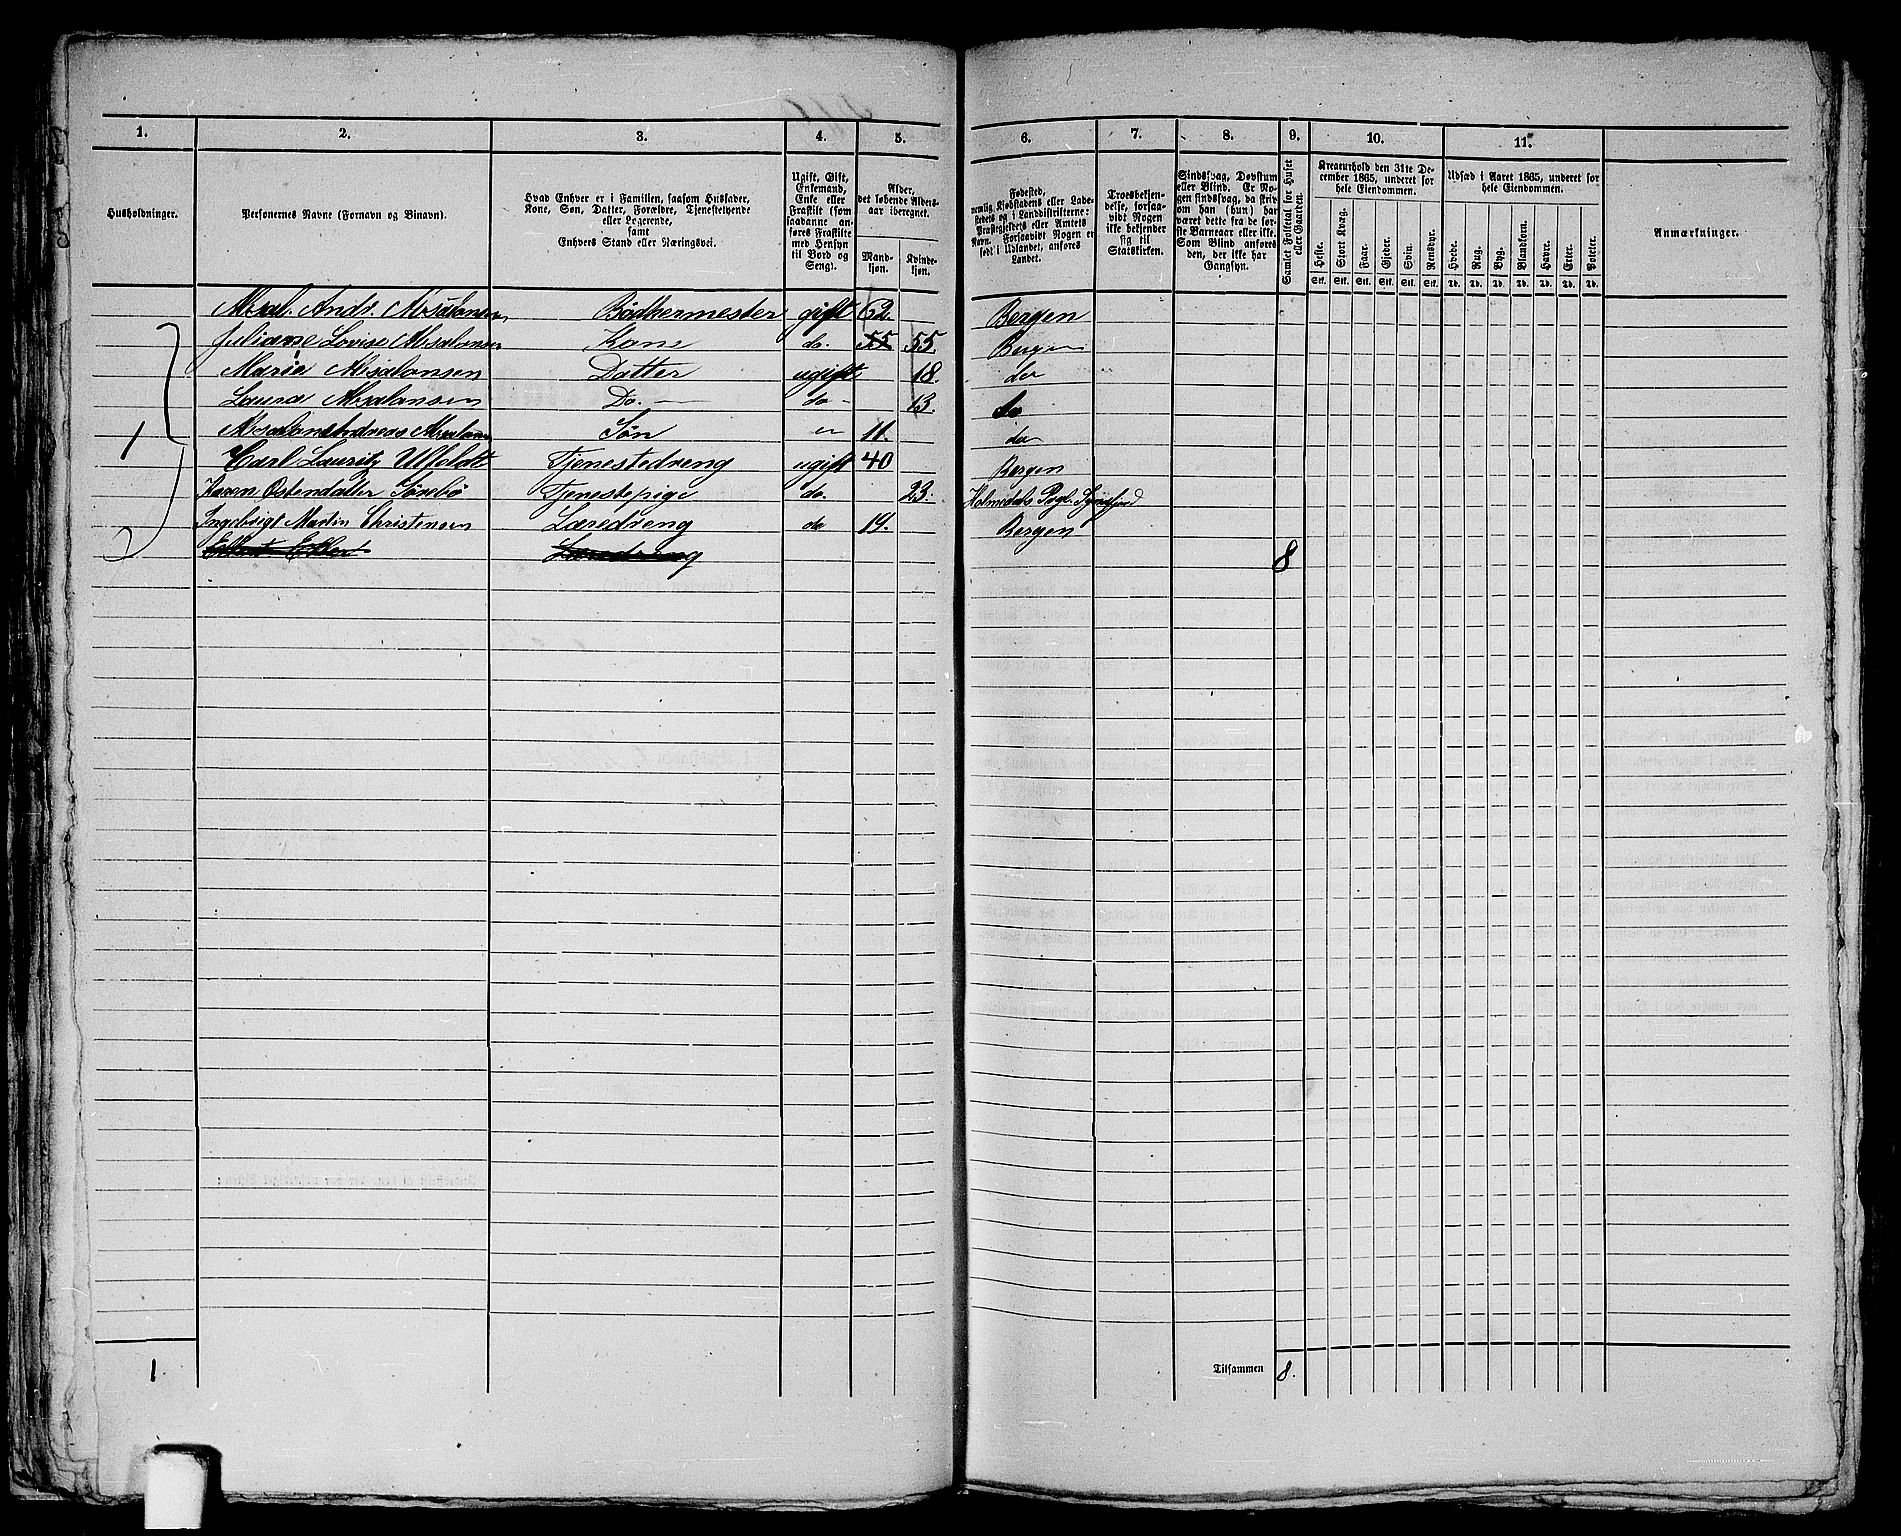 1. 2. 3. 4. 5. 6. 7. 8. 9. 10. 11.
Husholdninger.
Personernes Navne (Fornavn og Binavn).
Hvad Enhver er i Familien, saasom Husfader,
Kone, Søn, Datter, Forældre, Tjenestetyende
eller Logerende,
samt
Enhvers Stand eller Næringsvei.
Ugift, Gift,
Enkemand,
Enke eller
Fraskilt (som
saadanne an-
føres Fraskilte
med Hensyn
til Bord og
Seng).
Alder,
det løbende Alders-
aar iberegnet.
Mand-
kjøn.
Kvinde-
kjøn.
Fødested,
nemlig Kjøbstadens eller Lade-
stedets og i Landdistrikterne:
Præstegjeldets eller Amtets
Navn. Forsaavidt Nogen er
født i Udlandet, anføres
Landet.
Troesbekjen-
delse, forsaa-
vidt Nogen
ikke bekjender
sig til
Statskirken.
Sindssvag, Døvstum
eller Blind. Er No-
gen sindssvag, da skriv
om han (hun) har
været dette fra de før-
ste Barneaar eller ikke.
Som Blind anføres
den, der ikke har
Gangsyn.
Samlet Folketal for Huset
eller Gaarden.
Kreaturhold den 31te De-
cember 1865, underet for
hele Eiendommen.
Heste. Stort Kvæg. Faar. Gjeder. Svin. Rensdyr.
Stk. Stk. Stk. Stk. Stk. Stk.
Udsæd i Aaret 1865, underet for
hele Eiendommen.
Hvede. Rug. Byg. Blandkorn. Havre. Erter. Poteter.
Td. Td. Td. Td. Td. Td. Td.
Anmærkninger.
Absal. Ands. Absalonsen Bödkermester gift 62. Bergen
Juliane Lovise Absalonsen Kone do. 55 55. Bergen
Marie Absalonsen Datter ugift 18. do
Laura Absalonsen Do. — do — 13. do
1 Absalon Andreas Absalonsen Søn 11. do
Carl Lauritz Ulfeldt Tjenestedreng ugift 40 Bergen
Karen Ostendatter Sörebö Tjenestepige do. 23. Holmedals Pgl. Søndfjord
Ingebrigt Martin Christensen Læredreng do 19. Bergen
Læredreng 8
1 Tilsammen 8.